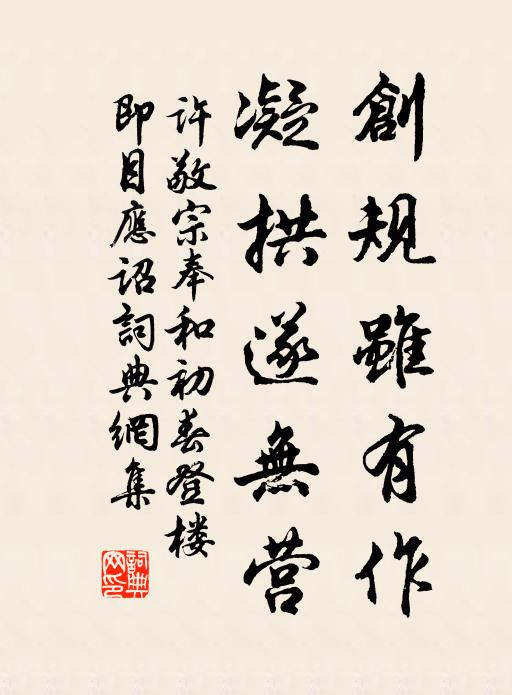 創規雖有作
凝拱遂無营
许敬宗奉和初春登楼
即目應诏詞典網集
詞典
网印